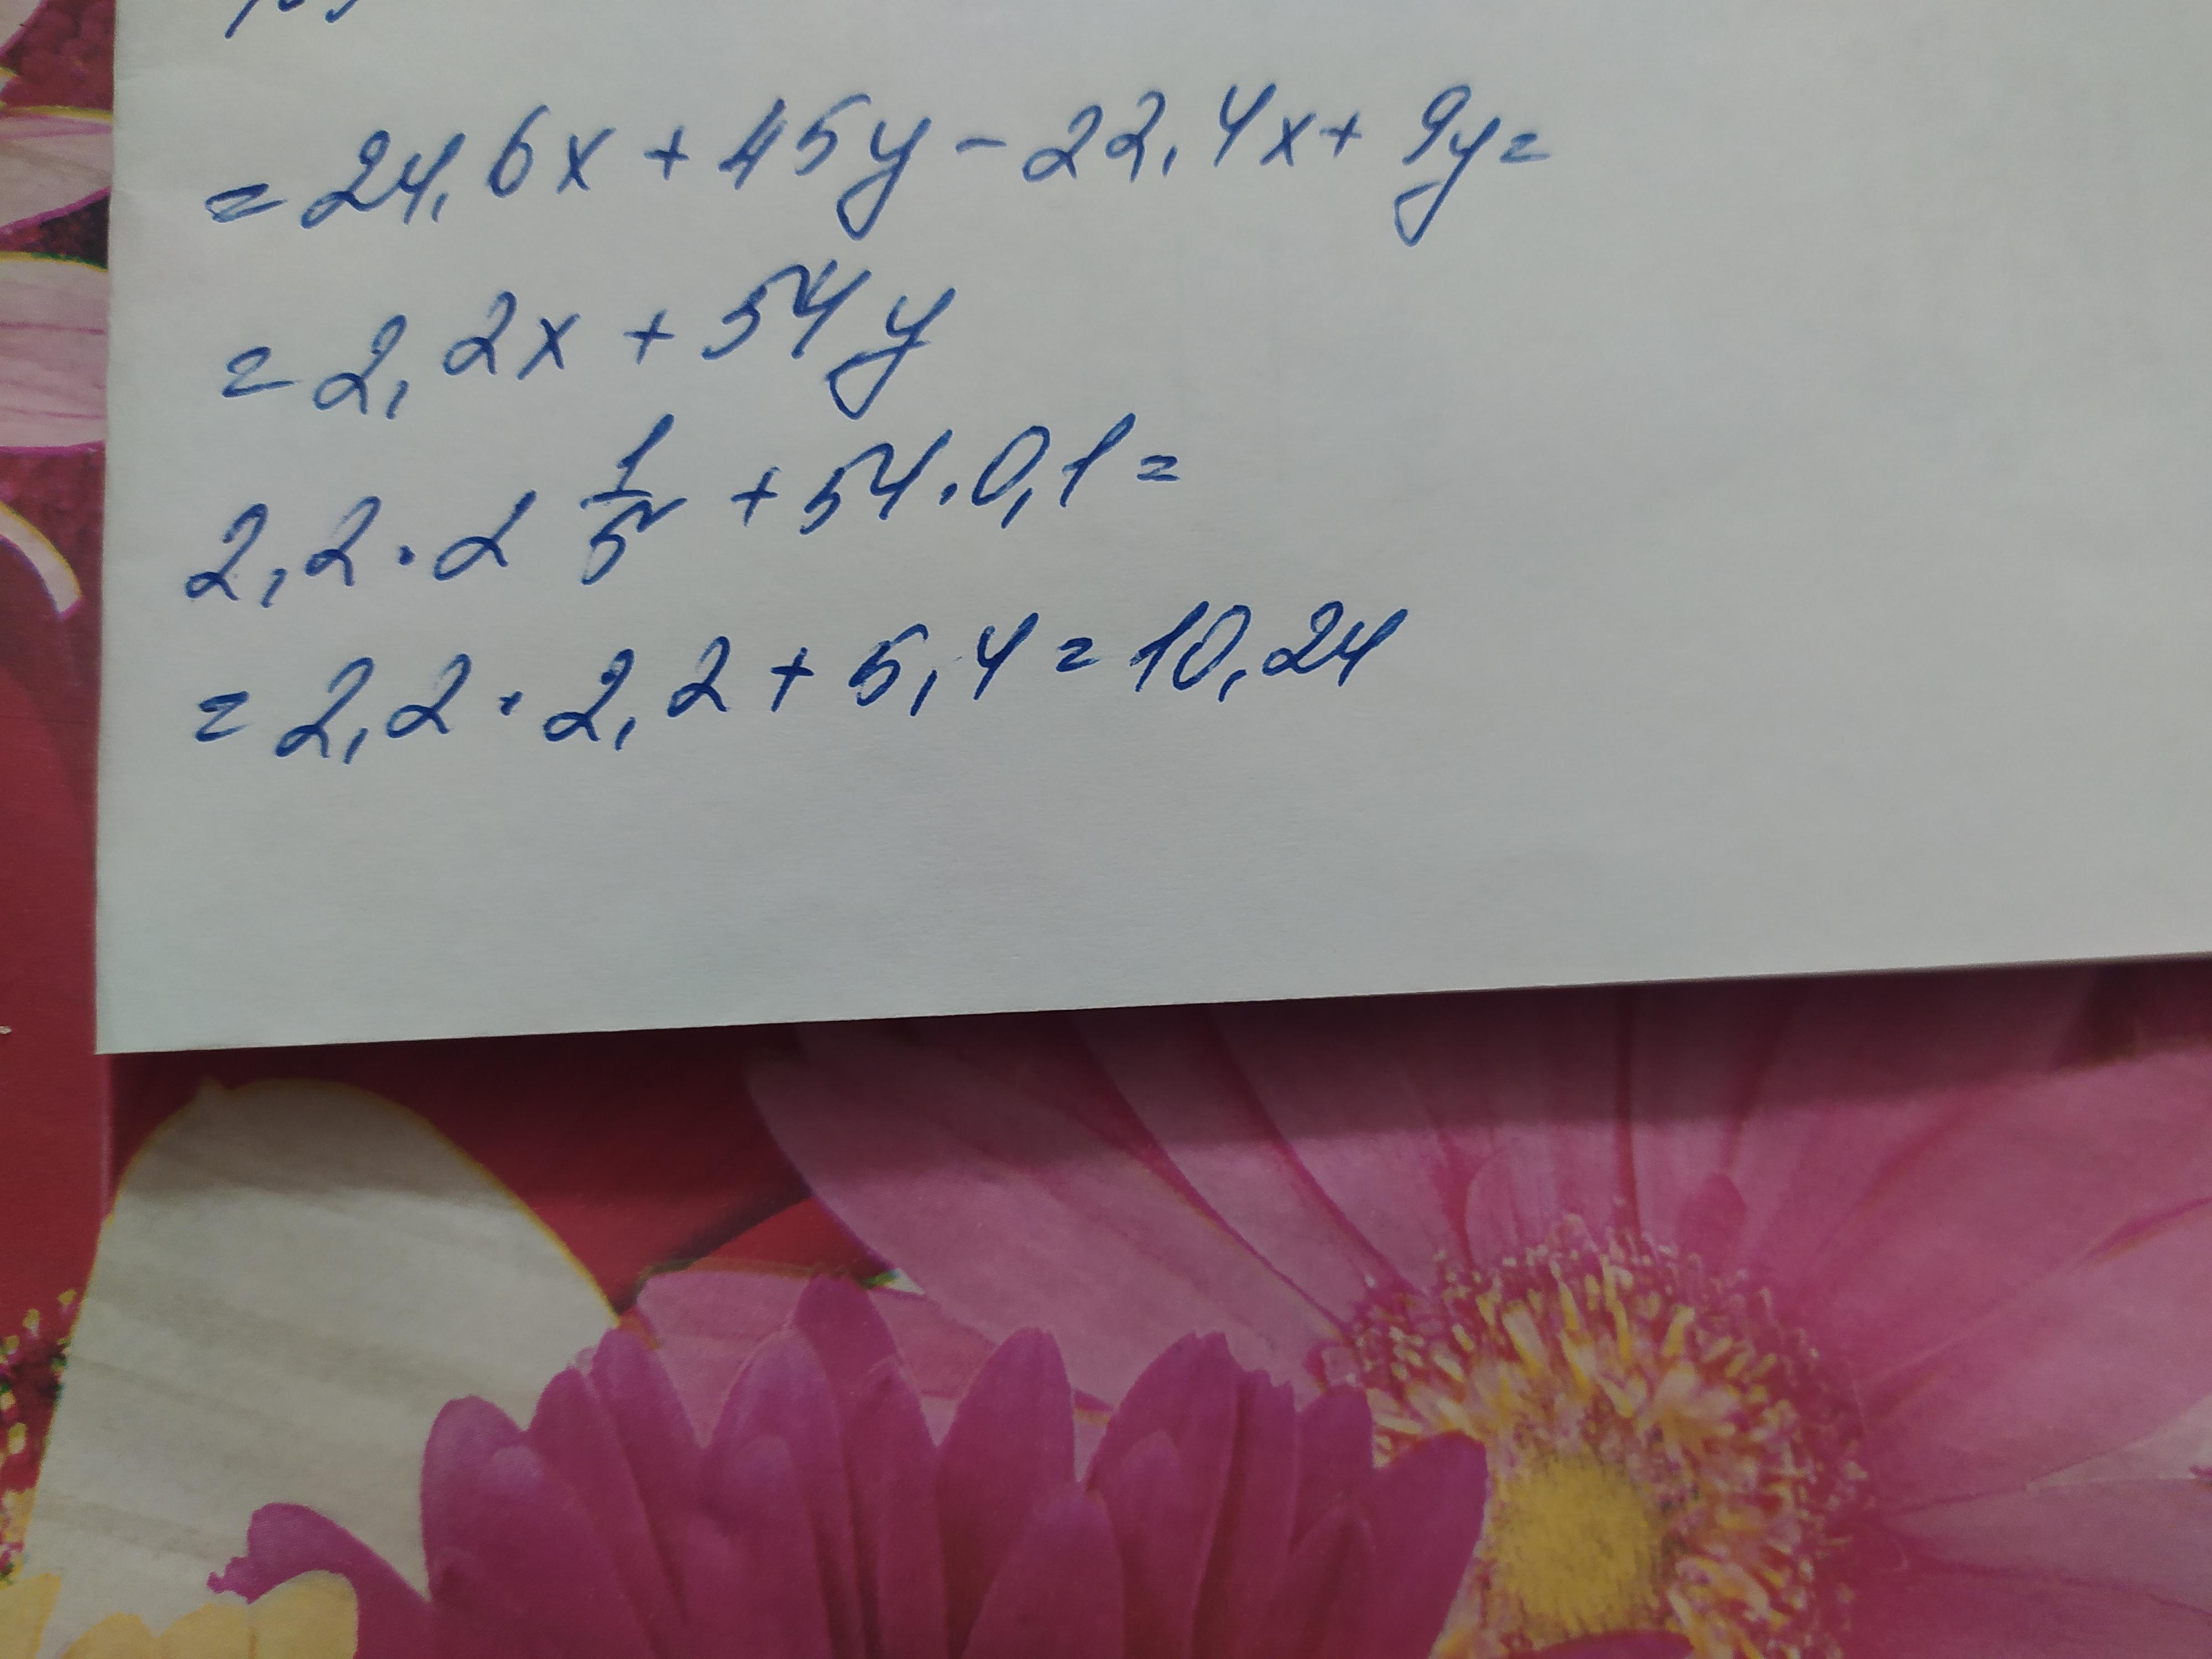 = 24,6x + 45y - 22,4x + 9y =
= 2,2x + 54y
2,2 · 2 1/5 + 54 · 0,1 =
= 2,2 · 2,2 + 5,4 = 10,24